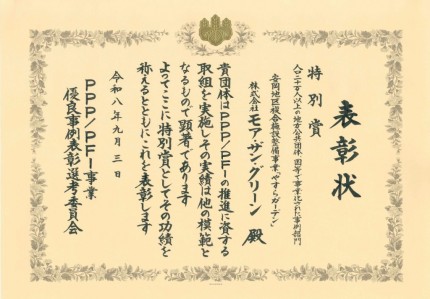 表彰状
特別賞
人口二十万人以上の地方公共団体、国等で事業化された事例部門
安岡地区複合施設整備事業、やすらガーデン
株式会社モアザングリーン 殿
貴団体はPPP/PFIの推進に資する
取組を実施しその実績は他の模範と
なるもので顕著であります
よってここに特別賞としてその功績を
称えるとともにこれを表彰します
令和八年九月三日
PPP/PFI事業
優良事例表彰選考委員会